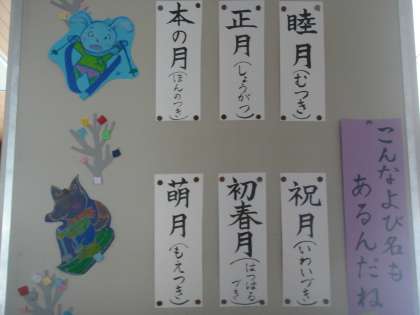 睦月(むつき)
正月(しょうがつ)
本の月(ほんのつき)
祝月(いわいづき)
初春月(はつはるづき)
萌月(もえつき)
"こんなよび名も
あるんだね